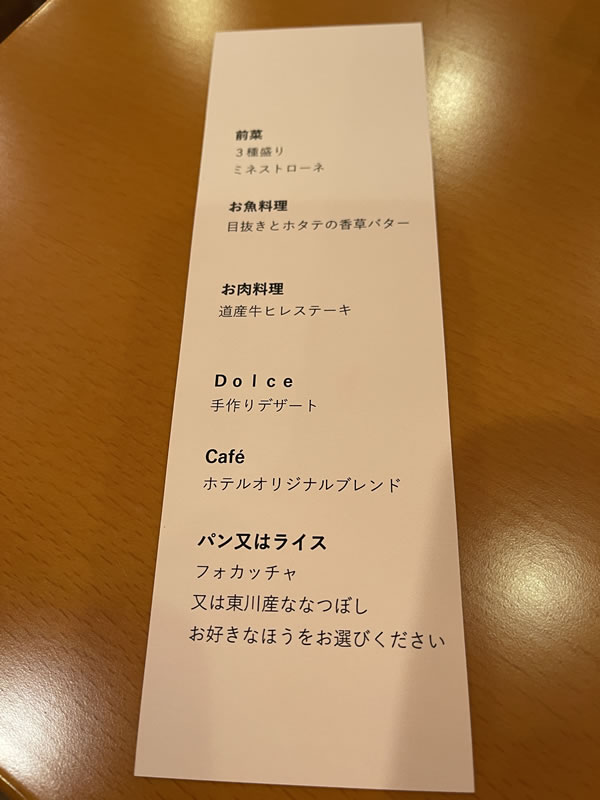 前菜
３種盛り
ミネストローネ
お魚料理
目抜きとホタテの香草バター
お肉料理
道産牛ヒレステーキ
Ｄｏｌｃｅ
手作りデザート
Café
ホテルオリジナルブレンド
パン又はライス
フォカッチャ
又は東川産ななつぼし
お好きなほうをお選びください